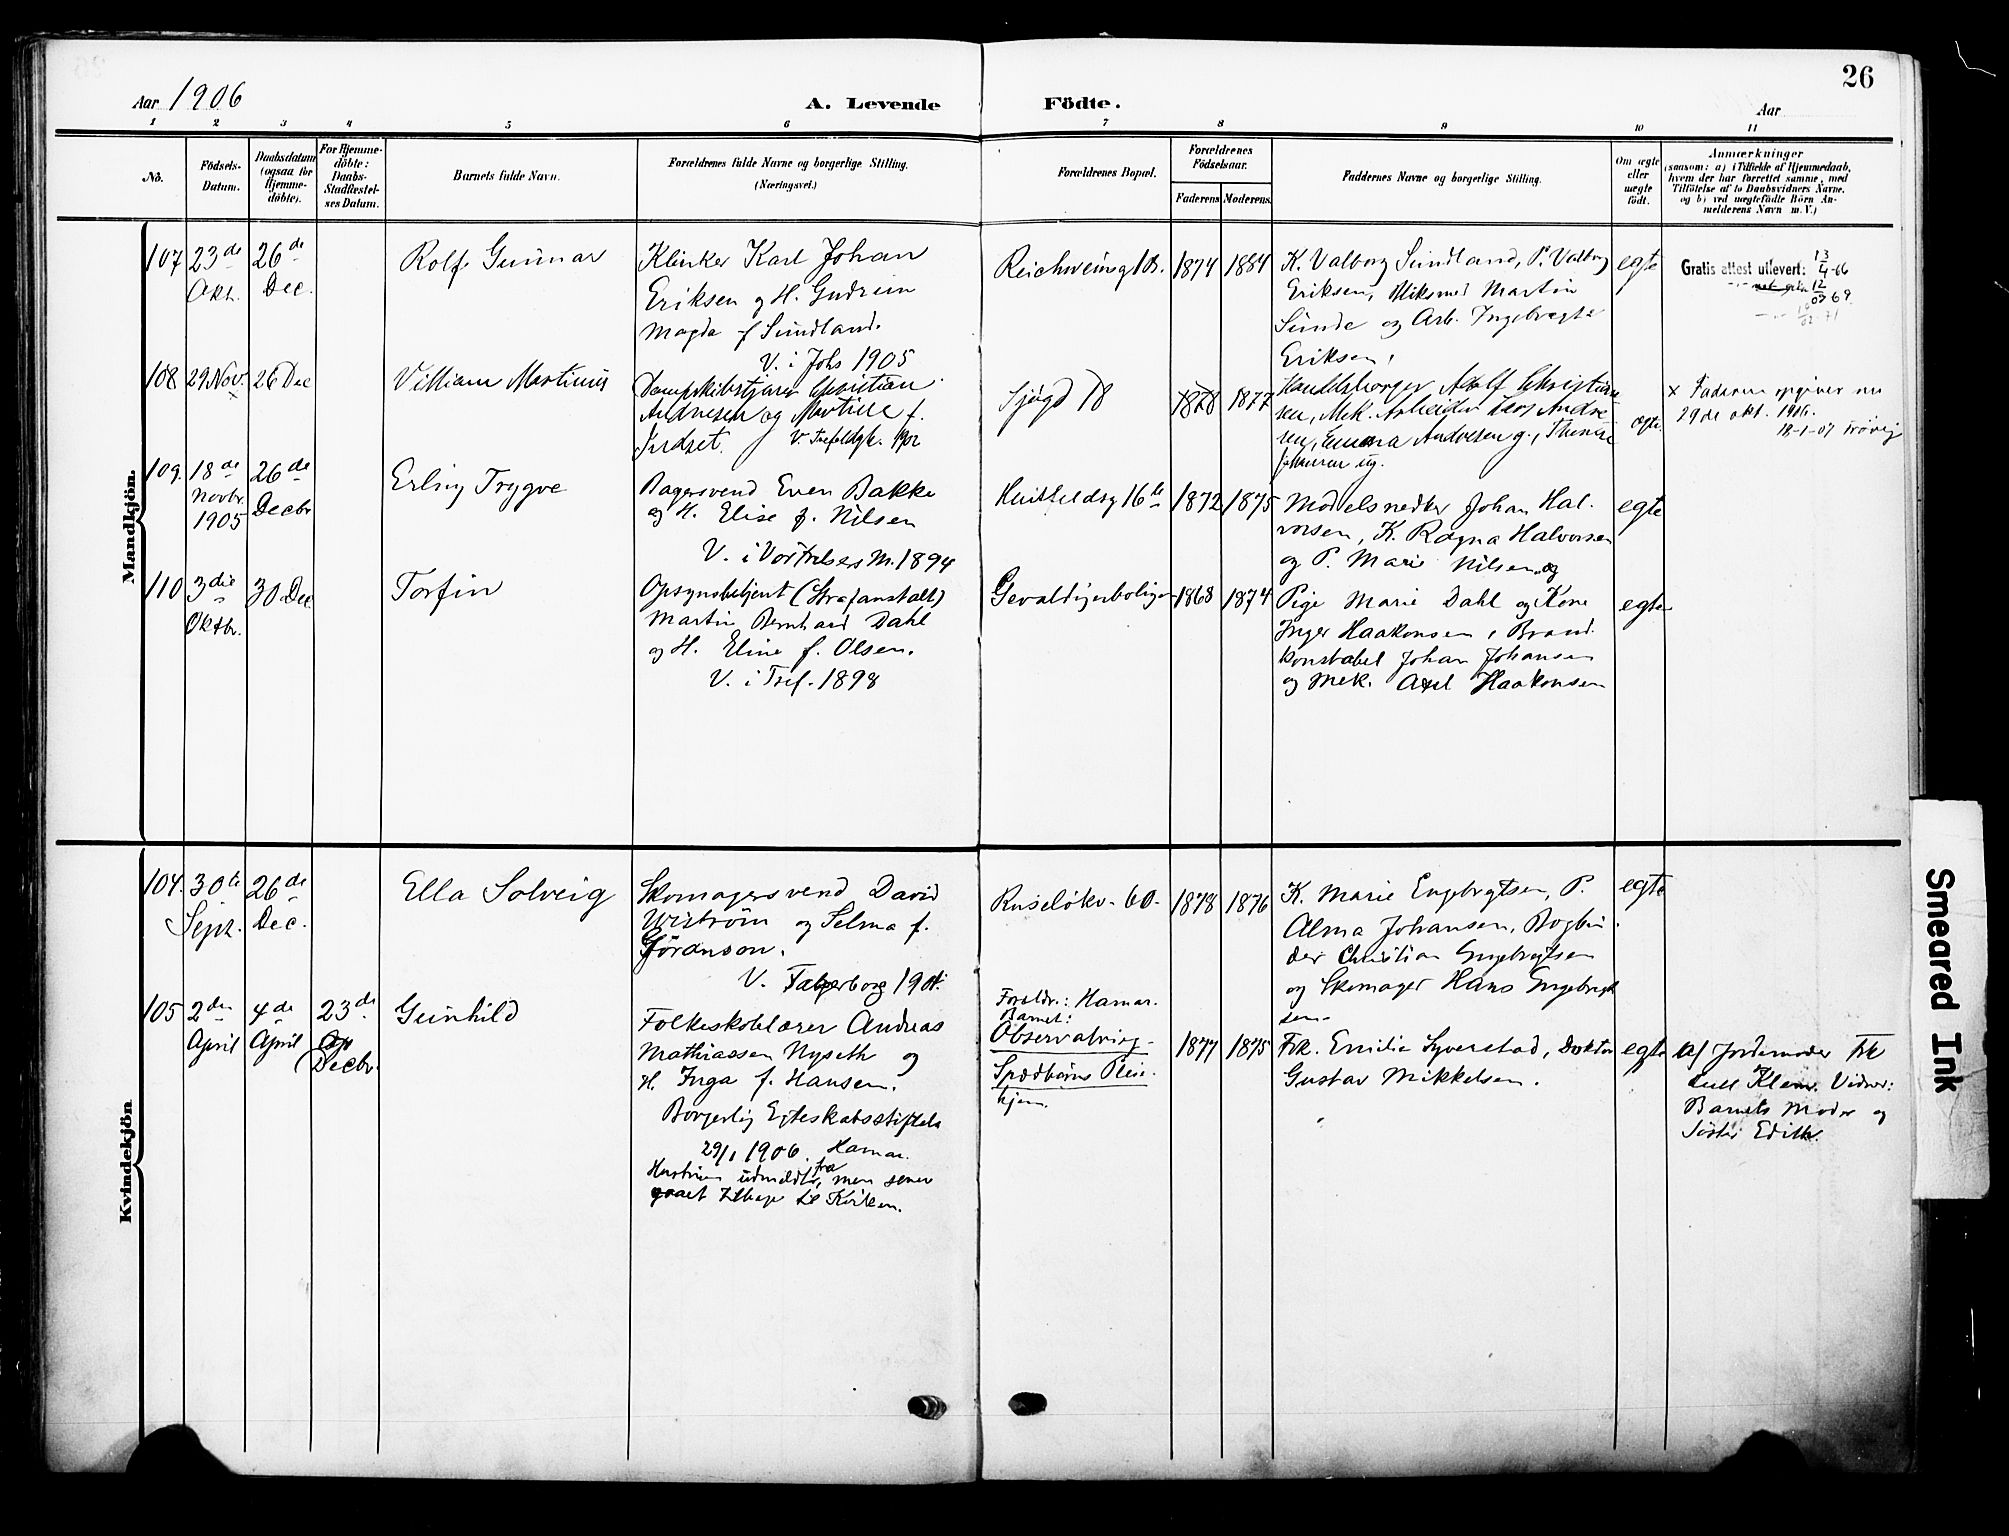 26
Aar 1906
A. Levende Födte.
Aar
1 2 3 4 5 6 7 8 9 10 11
No.
Födsels-
Datum.
Daabsdatum
(ogsaa for
Hjemme-
döbte).
For Hjemme-
döbte:
Daabs-
Stadfæstel-
ses Datum.
Barnets fulde Navn.
Forældrenes fulde Navne og borgerlige Stilling.
(Næringsvei.)
Forældrenes Bopæl.
Forældrenes
Födselsaar.
Faderens Moderens.
Faddernes Navne og borgerlige Stilling.
Om ægte
eller
uægte
födt.
Anmærkninger
(saasom: a) i Tilfælde af Hjemmedaab,
hvem der har forrettet samme, med
Tilföielse af to Daabsvidners Navne,
og b) ved uægtefödte Börn An-
melderens Navn m. V.)
Mandkjön.
107 23de
Okt.
26de
Dec.
Rolf Gunnar
Klinker Karl Johan
Eriksen og H. Gudrun
Magda f Sundland.
V. i Johs 1905
Reichweinsg 1B.
1874 1884
K. Valborg Sundland, P. Valborg
Eriksen, Miksmed Martin
Sunde og Arb. Ingebregte
Eriksen,
egte
Gratis attest utlevert: 13/4-66
12/03 69
108 29 Nov. x
26 Dec
Villiam Martinius
Dampskibstjarer Christian
Andresen og Martine f.
V. Trefoldgk. 1902
Sjøgd 18
1878 1877
Adolf Christian
sen, Mek. Arbeider Lars Andre
sen, Emma Andresen g.,
ægte
x Faderen opgiver nu
29de okt. 1906.
18-1-07
109. 18de
Novbr.
1905
26de
Decbr
Erling Trygve
Bagersvend Even Bakke
og H. Elise f. Nilsen
V. i Vor Frelsers M. 1894
Huitfeldsg 16
1872 1875
Modelsnedker Johan Hal-
vorsen, K. Ragna Halvorsen
og P. Marie Nilsen
egte
110 3die
Oktbr.
30 Dec
Torfin
Opsynsbetjent (Strafanstalt)
Martin Bernhard Dahl
og H. Eline f. Olsen.
V. i Tref. 1898
Gevaldigerboligen
1868 1874
Pige Marie Dahl og Kone
Inger Haakonsen, Brand-
konstabel Johan Johansen
og Mek. Axel Haakonsen
egte
Kvindekjön
104. 30te
Sept.
26de
Dec.
Ella Solveig
Skomagersvend David
Wiström og Selma f.
Göranson.
V. Fagerborg 1901.
Ruseløkv. 60.
1878 1876
K. Marie Engebregtsen, P.
Alma Johansen, Bogbin-
der Christian Engebregtsen
og Skomager Hans Engebregt
sen.
egte
105 2den
April
4de
April
23de
Decbr.
Gunhild
Folkeskolelærer Andreas
Mathiassen Nyseth og
H. Inga f. Hansen.
Borgerlig Egteskabsstiftelse
29/1 1906. Hamar.
Hustruen udmeldt fra, men senere
gaaet tilbage til Kirken.
Foreldr.: Hamar.
Barnet:
Observatrieg.
Spædbarns Pleie-
hjem.
1877 1875
Frk. Emilie Syverstad, Doktor
Gustav Mikkelsen.
egte
af Jordemoder Frk
Lull Klem. Vidner:
Barnets Moder og
Søster Edith.
Smeared Ink